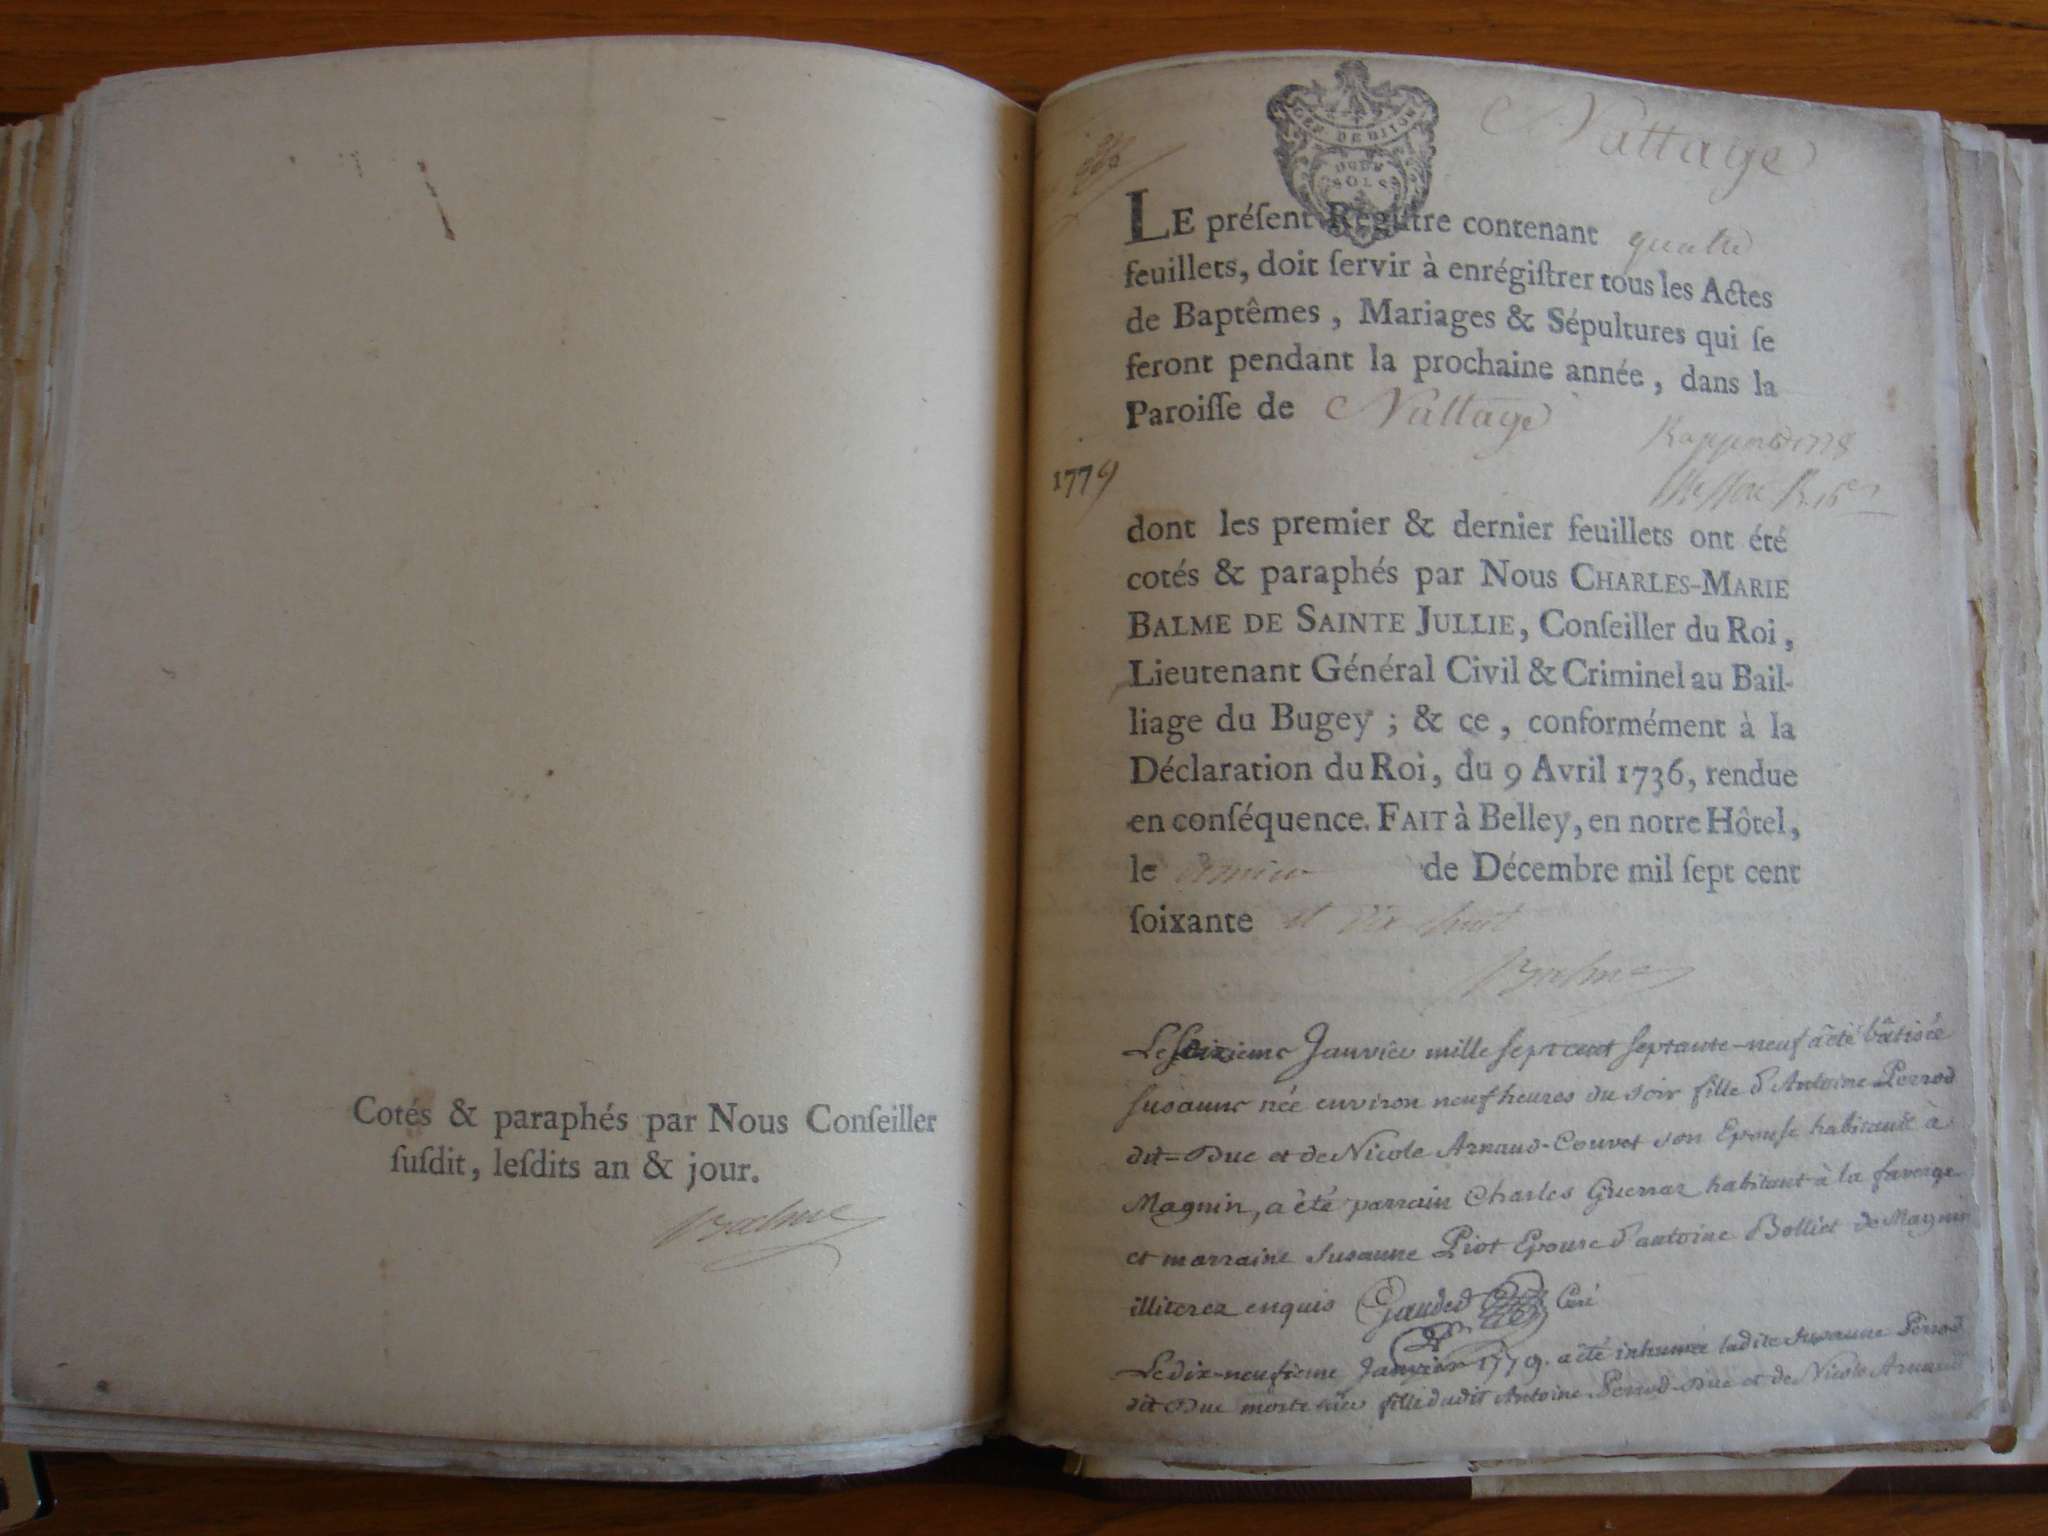 Cotés & paraphés par Nous Conſeiller
ſuſdit, leſdits an & jour.
Balme
GEN. DE DIJON
DEUX
SOLS
Nattage
LE préſent Regiſtre contenant quatre
feuillets, doit ſervir à enrégiſtrer tous les Actes
de Baptêmes, Mariages & Sépultures qui ſe
feront pendant la prochaine année, dans la
Paroiſſe de Nattage
1779
dont les premier & dernier feuillets ont été
cotés & paraphés par Nous CHARLES-MARIE
BALME DE SAINTE JULLIE, Conſeiller du Roi,
Lieutenant Général Civil & Criminel au Bail-
liage du Bugey ; & ce, conformément à la
Déclaration du Roi, du 9 Avril 1736, rendue
en conſéquence. FAIT à Belley, en notre Hôtel,
le dernier de Décembre mil ſept cent
ſoixante et dix huit
Balme
Le seizieme Janvier mille sept cent septante-neuf a été bâtisée
susanne née environ neuf heures du soir fille d'Antoine Perrod
dit=Duc et de Nicole Arnaud-Couvet son Epouse habitants à
Magnin, a été parrain Charles Guerraz habitant à la faverge
et marraine susanne Piot Epouse d'antoine Bolliet de Magnin
illiterez enquis Gaudet Curé
Le dix-neufieme Janvier 1779. a été inhumée ladite susanne Perrod
dit Duc morte hier fille dudit Antoine Perrod-Duc et de Nicole Arnaud